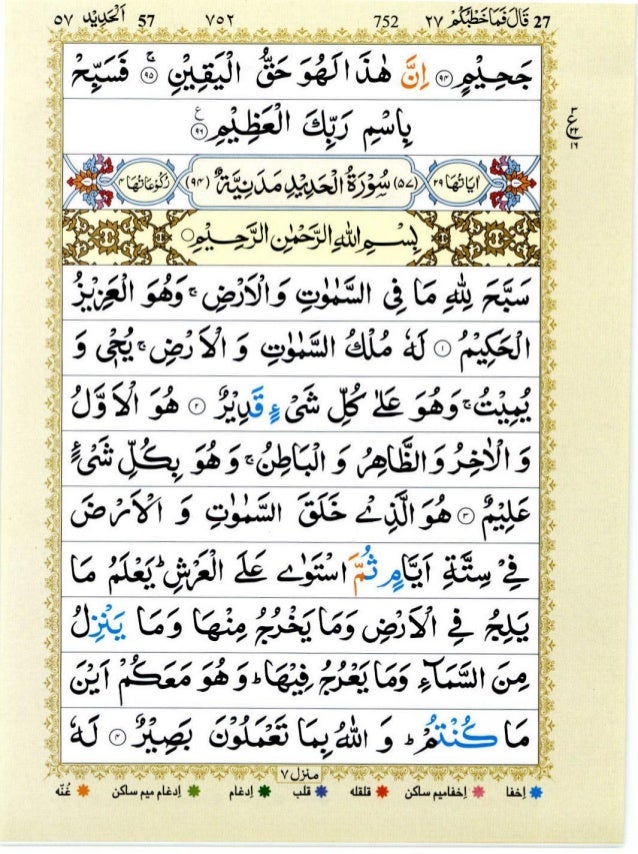 ٥٧ اَلۡحَدِیۡد 57 ٧٥٢ 752 قَالَ فَمَا خَطۡبُکُمۡ ٢٧ 27
جَحِیۡمٍ ۙ﴿۹۴﴾ اِنَّ هٰذَا لَهُوَ حَقُّ الۡیَقِیۡنِ ۚ﴿۹۵﴾ فَسَبِّحۡ
بِاسۡمِ رَبِّکَ الۡعَظِیۡمِ ﴿۹۶﴾ ع
٣ ع ٢٢ ١٦
اٰیَاتُهَا ٢٩ (٥٧) سُوۡرَةُ الۡحَدِیۡدِ مَدَنِیَّةٌ (٩٤) رُکُوۡعَاتُهَا ٤
بِسۡمِ اللّٰهِ الرَّحۡمٰنِ الرَّحِیۡمِ
سَبَّحَ لِلّٰهِ مَا فِی السَّمٰوٰتِ وَ الۡاَرۡضِ ۚ وَهُوَ الۡعَزِیۡزُ
الۡحَکِیۡمُ ﴿۱﴾ لَهٗ مُلۡکُ السَّمٰوٰتِ وَ الۡاَرۡضِ ۚ یُحۡیٖ وَ
یُمِیۡتُ ۚ وَهُوَ عَلٰی کُلِّ شَیۡءٍ قَدِیۡرٌ ﴿۲﴾ هُوَ الۡاَوَّلُ
وَ الۡاٰخِرُ وَ الظَّاهِرُ وَ الۡبَاطِنُ ۚ وَ هُوَ بِکُلِّ شَیۡءٍ
عَلِیۡمٌ ﴿۳﴾ هُوَ الَّذِیۡ خَلَقَ السَّمٰوٰتِ وَ الۡاَرۡضَ
فِیۡ سِتَّةِ اَیَّامٍ ثُمَّ اسۡتَوٰی عَلَی الۡعَرۡشِ ؕ یَعۡلَمُ مَا
یَلِجُ فِی الۡاَرۡضِ وَمَا یَخۡرُجُ مِنۡهَا وَ مَا یَنۡزِلُ
مِنَ السَّمَآءِ وَمَا یَعۡرُجُ فِیۡهَا ؕ وَ هُوَ مَعَکُمۡ اَیۡنَ
مَا کُنۡتُمۡ ؕ وَ اللّٰهُ بِمَا تَعۡمَلُوۡنَ بَصِیۡرٌ ﴿۴﴾ لَهٗ
منزل ٧
اِخفا اِخفامیم ساکن قلقله قلب اِدغام اِدغام میم ساکن غُنّه